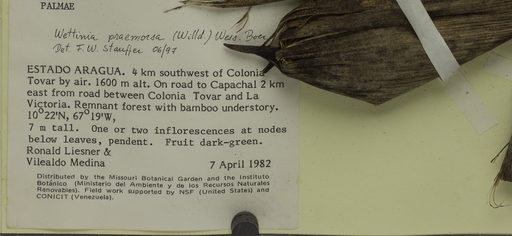 PALMAE
Wettinia praemorsa (Willd.) Wess. Boer
Det. F. W. Stauffer 06/97
ESTADO ARAGUA. 4 km southwest of Colonia
Tovar by air. 1600 m alt. On road to Capachal 2 km
east from road between Colonia Tovar and La
Victoria. Remnant forest with bamboo understory.
10°22'N, 67°19'W,
7 m tall. One or two inflorescences at nodes
below leaves, pendent. Fruit dark-green.
Ronald Liesner &
Vilealdo Medina 7 April 1982
Distributed by the Missouri Botanical Garden and the Instituto
Botánico (Ministerio del Ambiente y de los Recursos Naturales
Renovables). Field work supported by NSF (United States) and
CONICIT (Venezuela).